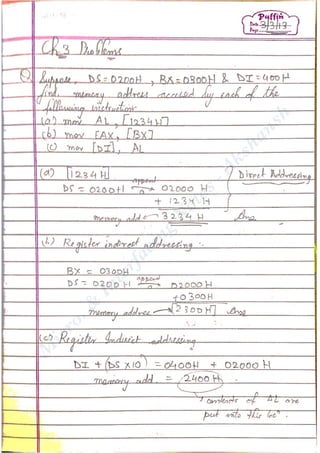 Puffin
Date 3/3/17
Page
Ch 3 Problems
Q. Suppose, DS=0200H, BX=0300H & DI=400H
find memory address accessed by each of the
following instruction
(a) mov AL, [1234H]
(b) mov EAX, [BX]
(c) mov [DI], AL
(a) [1234H] Direct Addressing
DS = 0200H append 0 → 02000 H
+ 1234 H
memory add ← 3234 H Ans
(b) Register indirect addressing :-
BX = 0300H
DS = 0200H append 0 → 02000H
+0300H
memory address ← 2300H Ans
(c) Register Indirect addressing
DI + (DS X10) = 0400H + 02000H
memory add. = 2400H
contents of AL are
put into this loc".